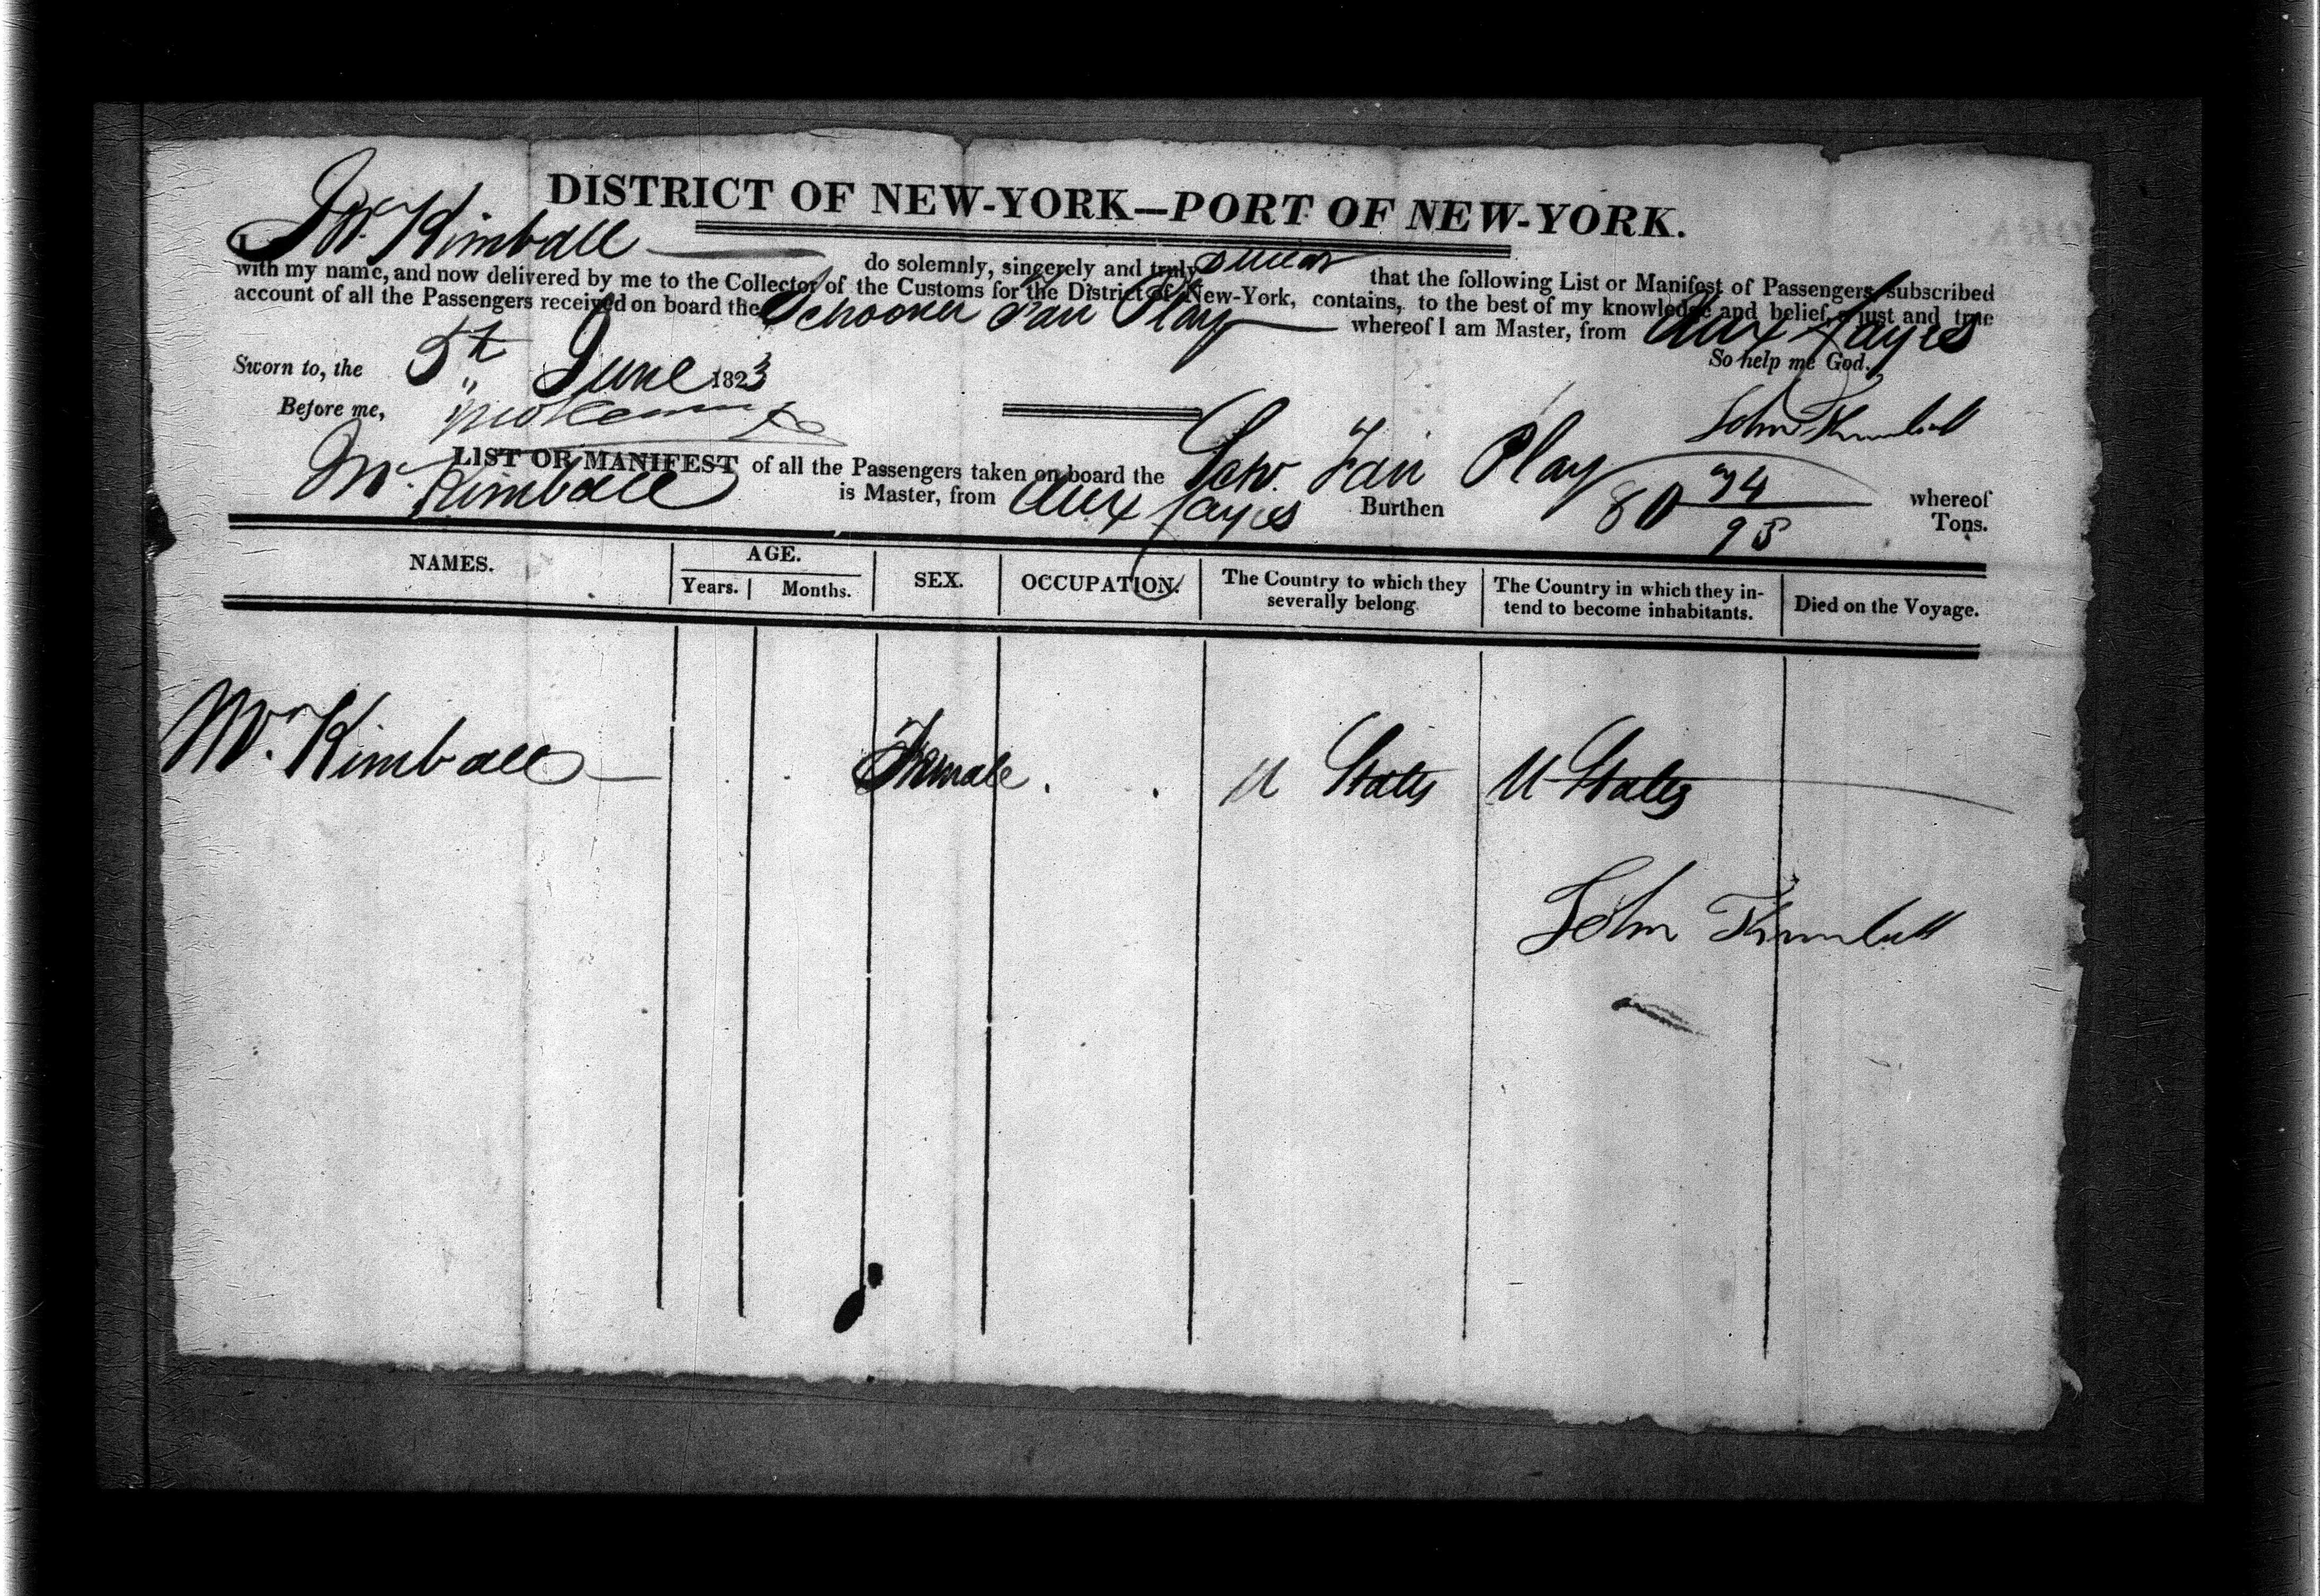 DISTRICT OF NEW-YORK—PORT OF NEW-YORK.
I, Kimball do solemnly, sincerely and truly swear that the following List or Manifest of Passengers, subscribed
with my name, and now delivered by me to the Collector of the Customs for the District of New-York, contains, to the best of my knowledge and belief, a just and true
account of all the Passengers received on board the Schooner Fair Play whereof I am Master, from Aux Cayes
Sworn to, the 5th June 1823 So help me God.
Before me, John Kimball
LIST OR MANIFEST of all the Passengers taken on board the Schr. Fair Play whereof
Mr. Kimball is Master, from Aux Cayes Burthen 80 74/95 Tons.
NAMES. AGE. SEX. OCCUPATION. The Country to which they severally belong The Country in which they in-tend to become inhabitants. Died on the Voyage.
Years. Months.
Kimball Female U States U States
John Kimball